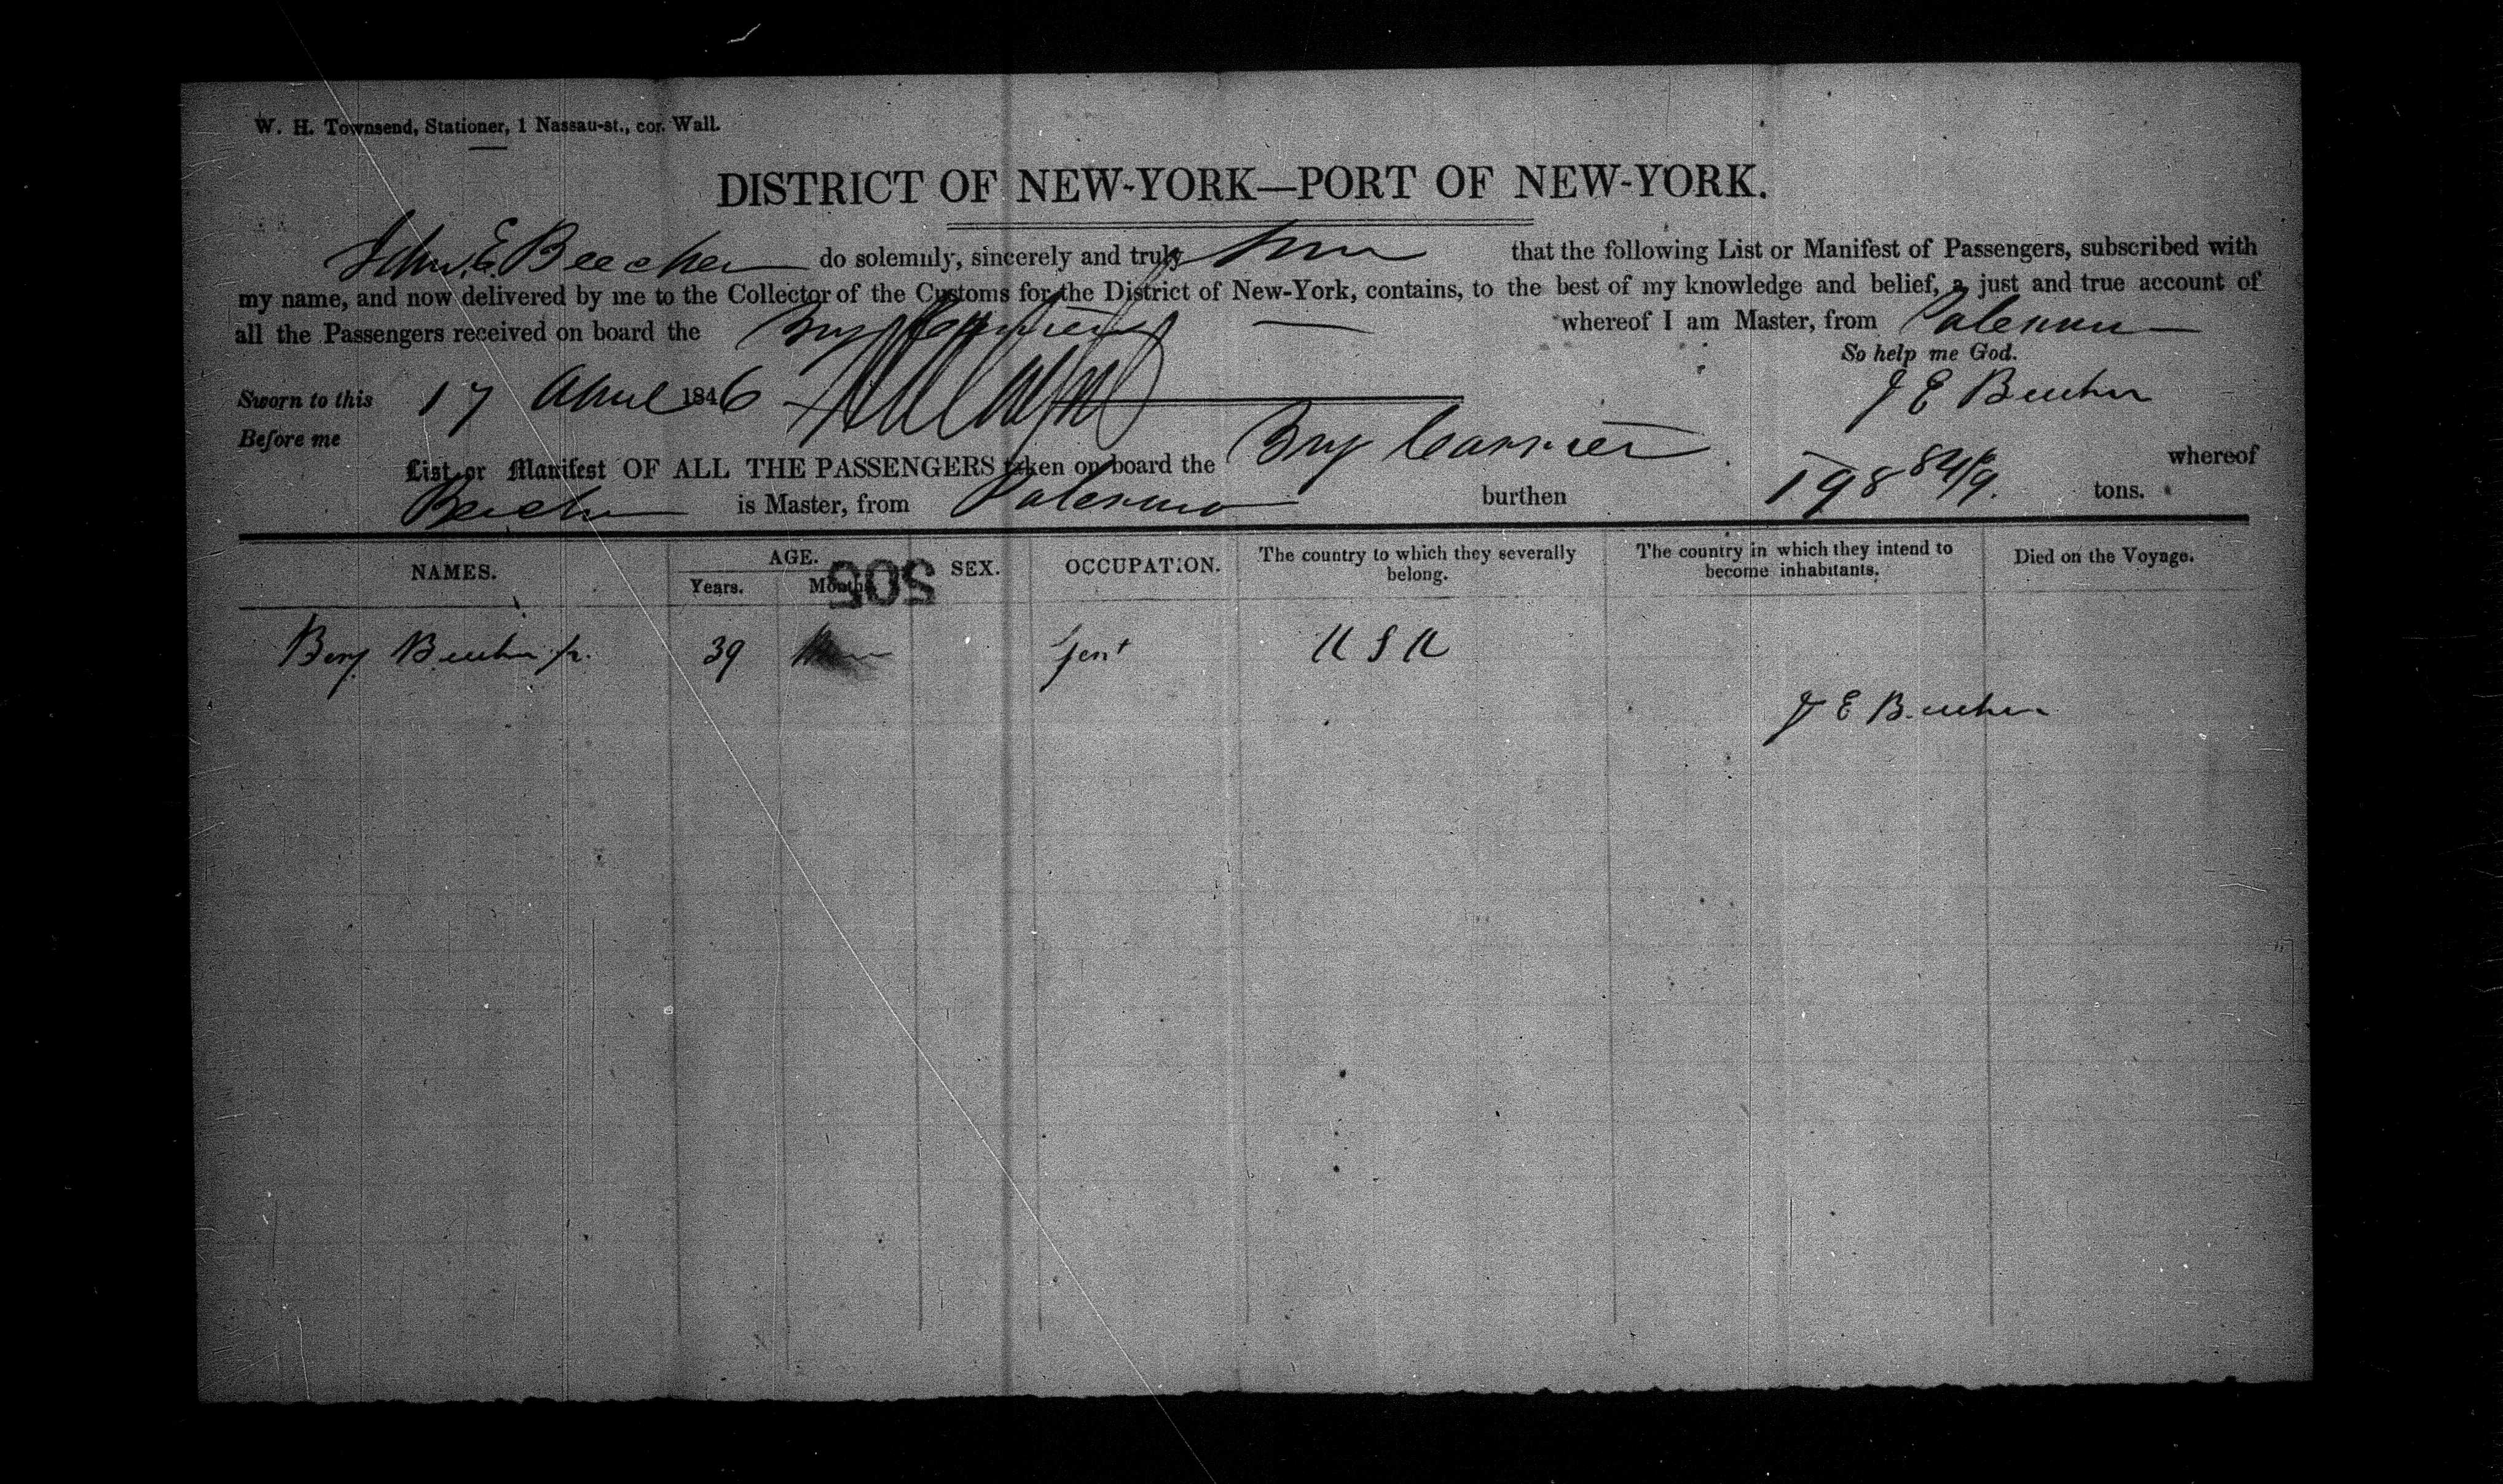 W. H. Townsend, Stationer, 1 Nassau-st., cor. Wall.
DISTRICT OF NEW-YORK—PORT OF NEW-YORK.
John E. Beecher do solemnly, sincerely and truly that the following List or Manifest of Passengers, subscribed with
my name, and now delivered by me to the Collector of the Customs for the District of New-York, contains, to the best of my knowledge and belief, a just and true account of
all the Passengers received on board the Brig Carrier whereof I am Master, from Palermo
So help me God.
Sworn to this 17 April 1846 J E Beecher
Before me
List or Manifest OF ALL THE PASSENGERS taken on board the Brig Carrier whereof
Beecher is Master, from Palermo burthen 198 tons.
NAMES. AGE. SEX. OCCUPATION. The country to which they severally belong. The country in which they intend to become inhabitants. Died on the Voyage.
Years. Months
505
Benj Beecher jr. 39 gent U S A
J E Beecher